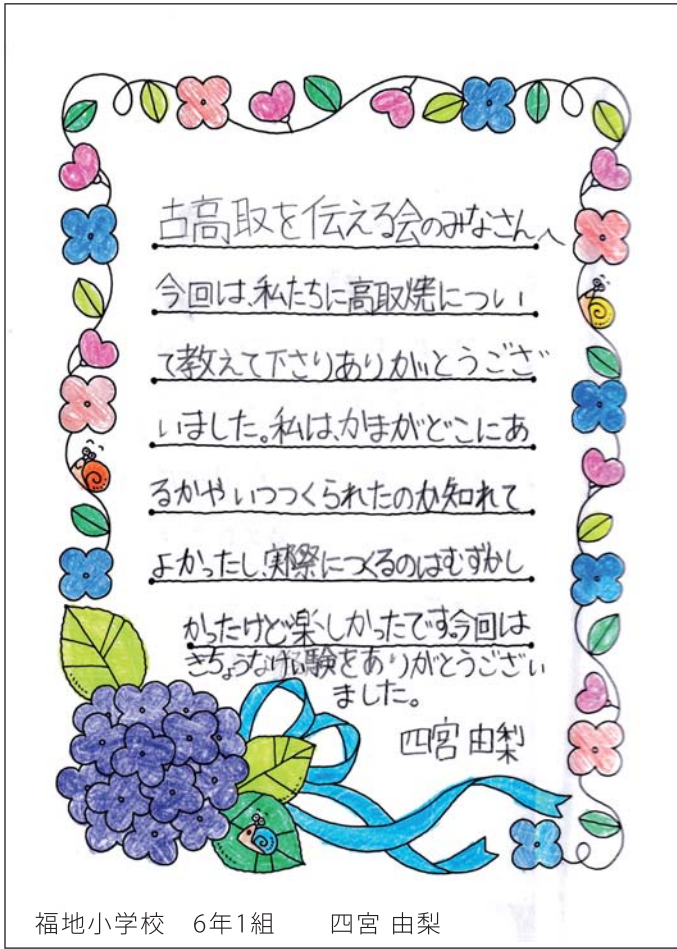 古高取を伝える会のみなさんへ
今回は、私たちに高取焼につい
て教えて下さりありがとうござ
いました。私は、かまがどこにあ
るかやいつつくられたのか知れて
よかったし、実際につくるのはむずかし
かったけど楽しかったです。今回は
きちょうなけい験をありがとうござい
ました。
四宮 由梨
福地小学校 6年1組 四宮 由梨